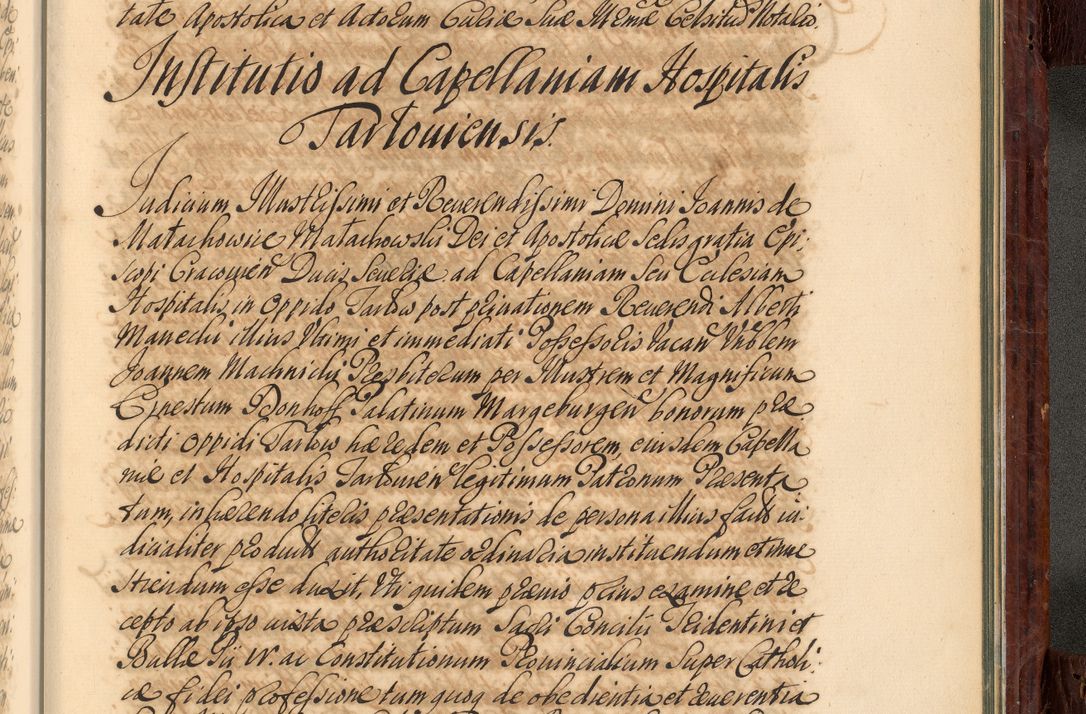 tate Apostolica et Actorum Curiæ Suæ Illmæ Celsitud Notario
Institutio ad Capellaniam Hospitalis
Tarloviensis.
Judicium Illustrissimi et Reverendissimi Domini Joannis de
Małachowice Małachowski Dei et Apostolicæ Sedis gratia Epi¬
scopi Cracovien Ducis Severiæ ad Capellaniam seu Ecclesiam
Hospitalis in Oppido Tarłow post privationem Reverendi Alberti
illius Ultimi et immediati Possessoris Vacan Vnblem
Joannem Machnicki Presbiterum per Illustrem et Magnificum
Ernestum Donhoff Palatinum Margeburgen bonorum præ
dicti Oppidi Tarłow hæredem et Possessorem, eiusdem Capella
niæ et Hospitalis Tarłowien legitimum Patronum Præsenta
tum, inhærendo literis præsentationis de persona illius factis iu¬
dicialiter product authoritate ordinaria instituendum et inve
stiendum esse duxit, Uti quidem prævio prius examine et re
cepto ab ipso iuxta præscriptum Sacri Concilii Tridentini et
Bullæ Pii IV. ac Constitutionum Provincialium super Catholi¬
cæ fidei professione tum quoq de obedientia et reverentia